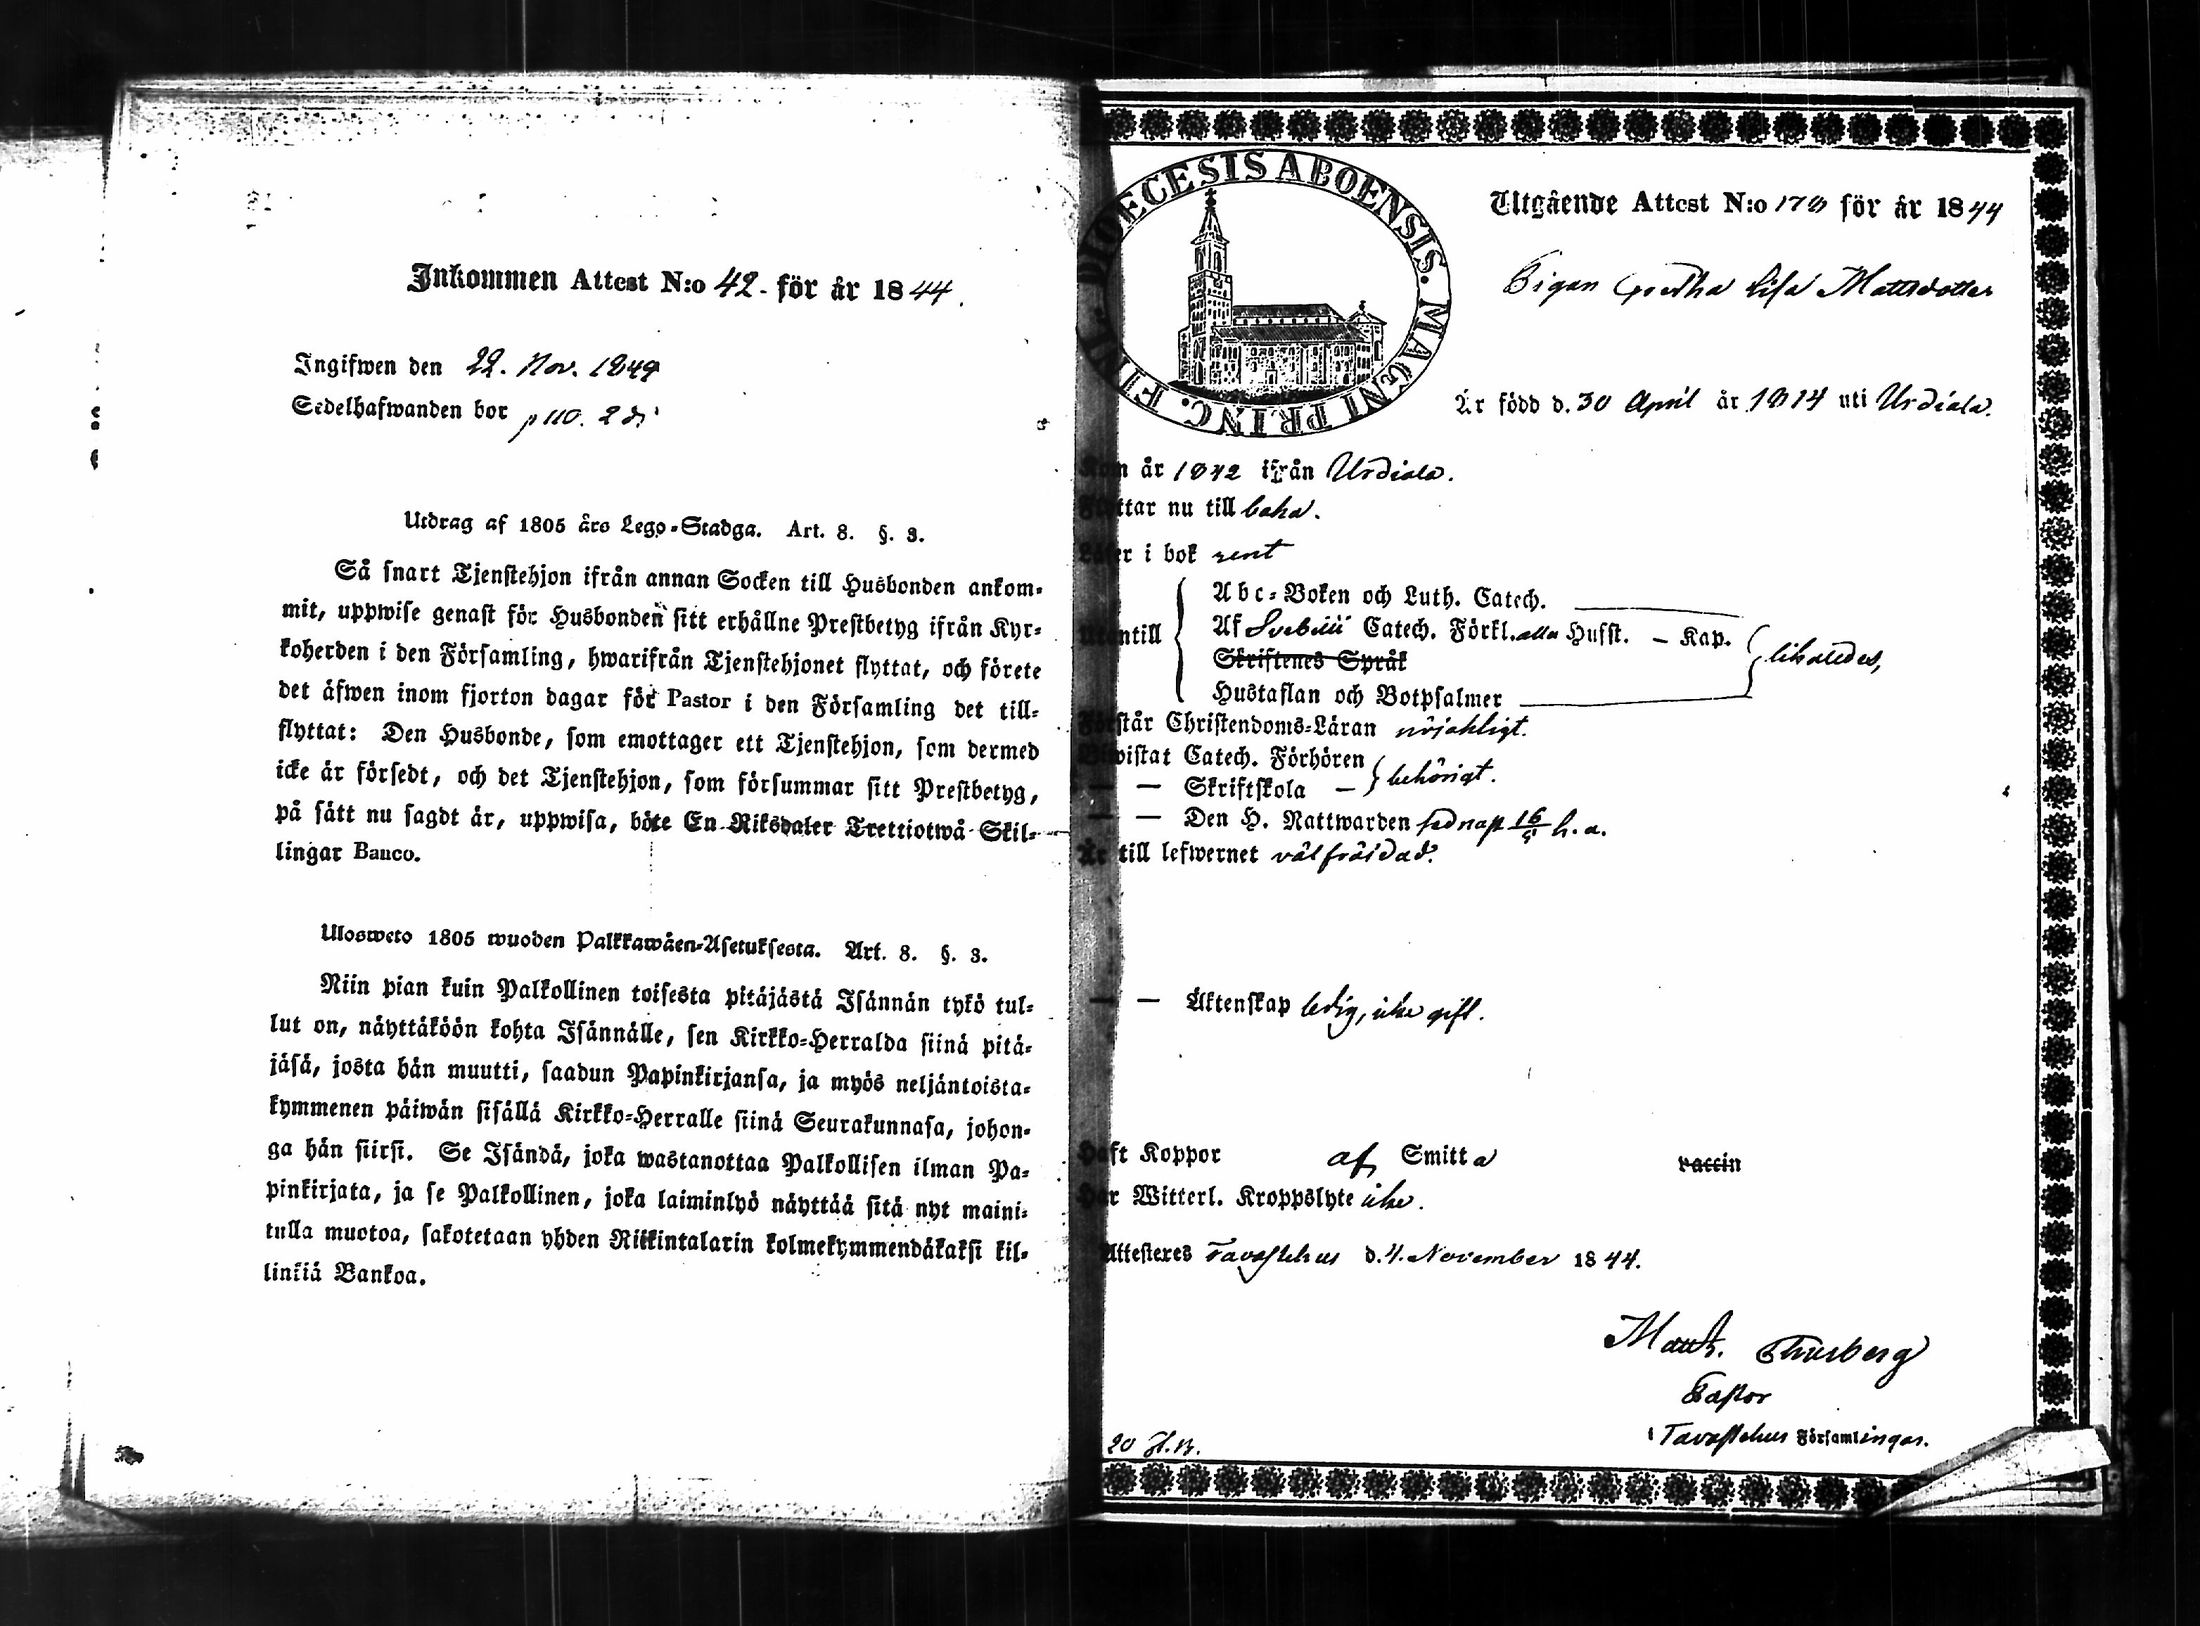 Inkommen Attest N:o 42. för år 1844.
Ingifwen den 22. Nov. 1844
Sedelhafwanden bor p 110. 2
Utdrag af 1805 års Lego-Stadga. Art. 8. §. 3.
Så snart Tjenstehjon ifrån annan Socken till Husbonden ankom-
mit, uppwise genast för Husbonden sitt erhållne Prestbetyg ifrån Kyr-
koherden i den Församling, hwarifrån Tjenstehjonet flyttat, och förete
det äfwen inom fjorton dagar för Pastor i den Församling det till-
flyttat: Den Husbonde, som emottager ett Tjenstehjon, som dermed
icke är försedt, och det Tjenstehjon, som försummar sitt Prestbetyg,
på sätt nu sagdt är, uppwisa, böte En Riksdaler Trettiotwå Skil-
lingar Banco.
Ulosweto 1805 wuoden Palkkawäen-Asetuksesta. Art. 8. §. 3.
Niin pian kuin Palkollinen toisesta pitäjästä Isännän tykö tul-
lut on, näyttäköön kohta Isännälle, sen Kirkko-Herralda siinä pitä-
jäsä, josta hän muutti, saadun Papinkirjansa, ja myös neljäntoista-
kymmenen päiwän sisällä Kirkko-Herralle siinä Seurakunnasa, johon-
ga hän siirsi. Se Isändä, joka wastanottaa Palkollisen ilman Pa-
pinkirjata, ja se Palkollinen, joka laiminlyö näyttää sitä nyt maini-
tulla muotoa, sakotetaan yhden Riikintalarin kolmekymmendäkaksi kil-
linkiä Bankoa.
DIOECESIS ABOENSIS. MAGNI PRINC. FINL.
Utgående Attest N:o 170 för år 1844
Pigan Gretha Lisa Mattsdotter
Är född d. 30 April år 1814 uti Urdiala.
Kom år 1842 ifrån Urdiala.
Flyttar nu till baka.
Läser i bok rent
Utantill
Abc-Boken och Luth. Catech.
Af Svebilii Catech. Förkl. alla Husst. – Kap.
likaledes,
Skriftenes Språk
Hustaflan och Botpsalmer
Förstår Christendoms-Läran nöjaktigt.
Biwistat Catech. Förhören
behörigt.
— — Skriftskola —
— — Den H. Nattwarden sednast 16/5 h. a.
Är till lefwernet välfräjdad.
— — Äktenskap ledig, icke gift.
Haft Koppor af Smitta vaccin
Har Witterl. Kroppslyte icke.
Attesteres Tavastehus d. 4. November 1844.
Thusberg
Pastor
i Tavastehus Församlingar.